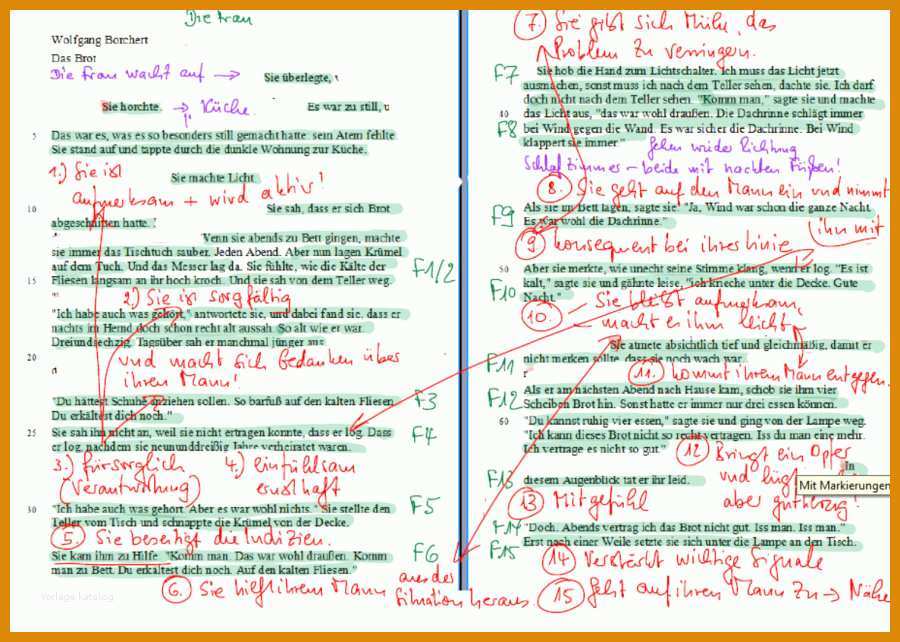 Die Frau
Wolfgang Borchert
Das Brot
Die Frau wacht auf →
Sie überlegte,
Sie horchte. → Küche.
Es war zu still, u
5 Das war es, was es so besonders still gemacht hatte: sein Atem fehlte.
Sie stand auf und tappte durch die dunkle Wohnung zur Küche.
1.) Sie ist
Sie machte Licht.
aufmerksam + wird aktiv!
10 Sie sah, dass er sich Brot
abgeschnitten hatte.
Wenn sie abends zu Bett gingen, machte
sie immer das Tischtuch sauber. Jeden Abend. Aber nun lagen Krümel
auf dem Tuch. Und das Messer lag da. Sie fühlte, wie die Kälte der
15 Fliesen langsam an ihr hoch kroch. Und sie sah von dem Teller weg.
F1/2
2) Sie ist sorgfältig
"Ich habe auch was gehört," antwortete sie, und dabei fand sie, dass er
nachts im Hemd doch schon recht alt aussah. So alt wie er war.
Dreiundsechzig. Tagsüber sah er manchmal jünger aus.
20
und macht sich Gedanken über
ihren Mann!
"Du hättest Schuhe anziehen sollen. So barfuß auf den kalten Fliesen.
Du erkältest dich noch."
F3
25 Sie sah ihn nicht an, weil sie nicht ertragen konnte, dass er log. Dass
er log, nachdem sie neununddreißig Jahre verheiratet waren.
F4
3.) fürsorglich
(Verantwortung)
4.) einfühlsam
ernsthaft
30 "Ich habe auch was gehört. Aber es war wohl nichts." Sie stellte den
Teller vom Tisch und schnappte die Krümel von der Decke.
F5
5. Sie beseitigt die Indizien.
Sie kam ihm zu Hilfe. "Komm man. Das war wohl draußen. Komm
man zu Bett. Du erkältest dich noch. Auf den kalten Fliesen."
F6
6. Sie hilft ihrem Mann aus der
Situation heraus.
Vorlage katalog
7. Sie gibt sich Mühe, das
Problem zu verringern.
F7 Sie hob die Hand zum Lichtschalter. Ich muss das Licht jetzt
ausmachen, sonst muss ich nach dem Teller sehen, dachte sie. Ich darf
doch nicht nach dem Teller sehen. "Komm man," sagte sie und machte
40 das Licht aus, "das war wohl draußen. Die Dachrinne schlägt immer
F8 bei Wind gegen die Wand. Es war sicher die Dachrinne. Bei Wind
klappert sie immer."
Gehen wieder Richtung
Schlafzimmer – beide mit nackten Füßen!
8. Sie geht auf den Mann ein und nimmt
ihn mit
F9 Als sie im Bett lagen, sagte sie: "Ja, Wind war schon die ganze Nacht.
Es war wohl die Dachrinne."
9 konsequent bei ihrer Linie
50 Aber sie merkte, wie unecht seine Stimme klang, wenn er log. "Es ist
F10 kalt," sagte sie und gähnte leise, "ich krieche unter die Decke. Gute
Nacht."
10. – Sie bleibt aufmerksam,
– macht es ihm leicht
Sie atmete absichtlich tief und gleichmäßig, damit er
F11 nicht merken sollte, dass sie noch wach war.
11. kommt ihrem Mann entgegen.
F12 Als er am nächsten Abend nach Hause kam, schob sie ihm vier
Scheiben Brot hin. Sonst hatte er immer nur drei essen können.
60 "Du kannst ruhig vier essen," sagte sie und ging von der Lampe weg.
"Ich kann dieses Brot nicht so recht vertragen. Iss du man eine mehr.
Ich vertrage es nicht so gut."
12 Bringt ein Opfer
und lügt
aber gutherzig!
In
F13 diesem Augenblick tat er ihr leid.
Mit Markierungen
13 Mitgefühl
F14 "Doch. Abends vertrag ich das Brot nicht gut. Iss man. Iss man."
F15 Erst nach einer Weile setzte sie sich unter die Lampe an den Tisch.
14 Versteckt wichtige Signale
15 Geht auf ihren Mann zu → Nähe